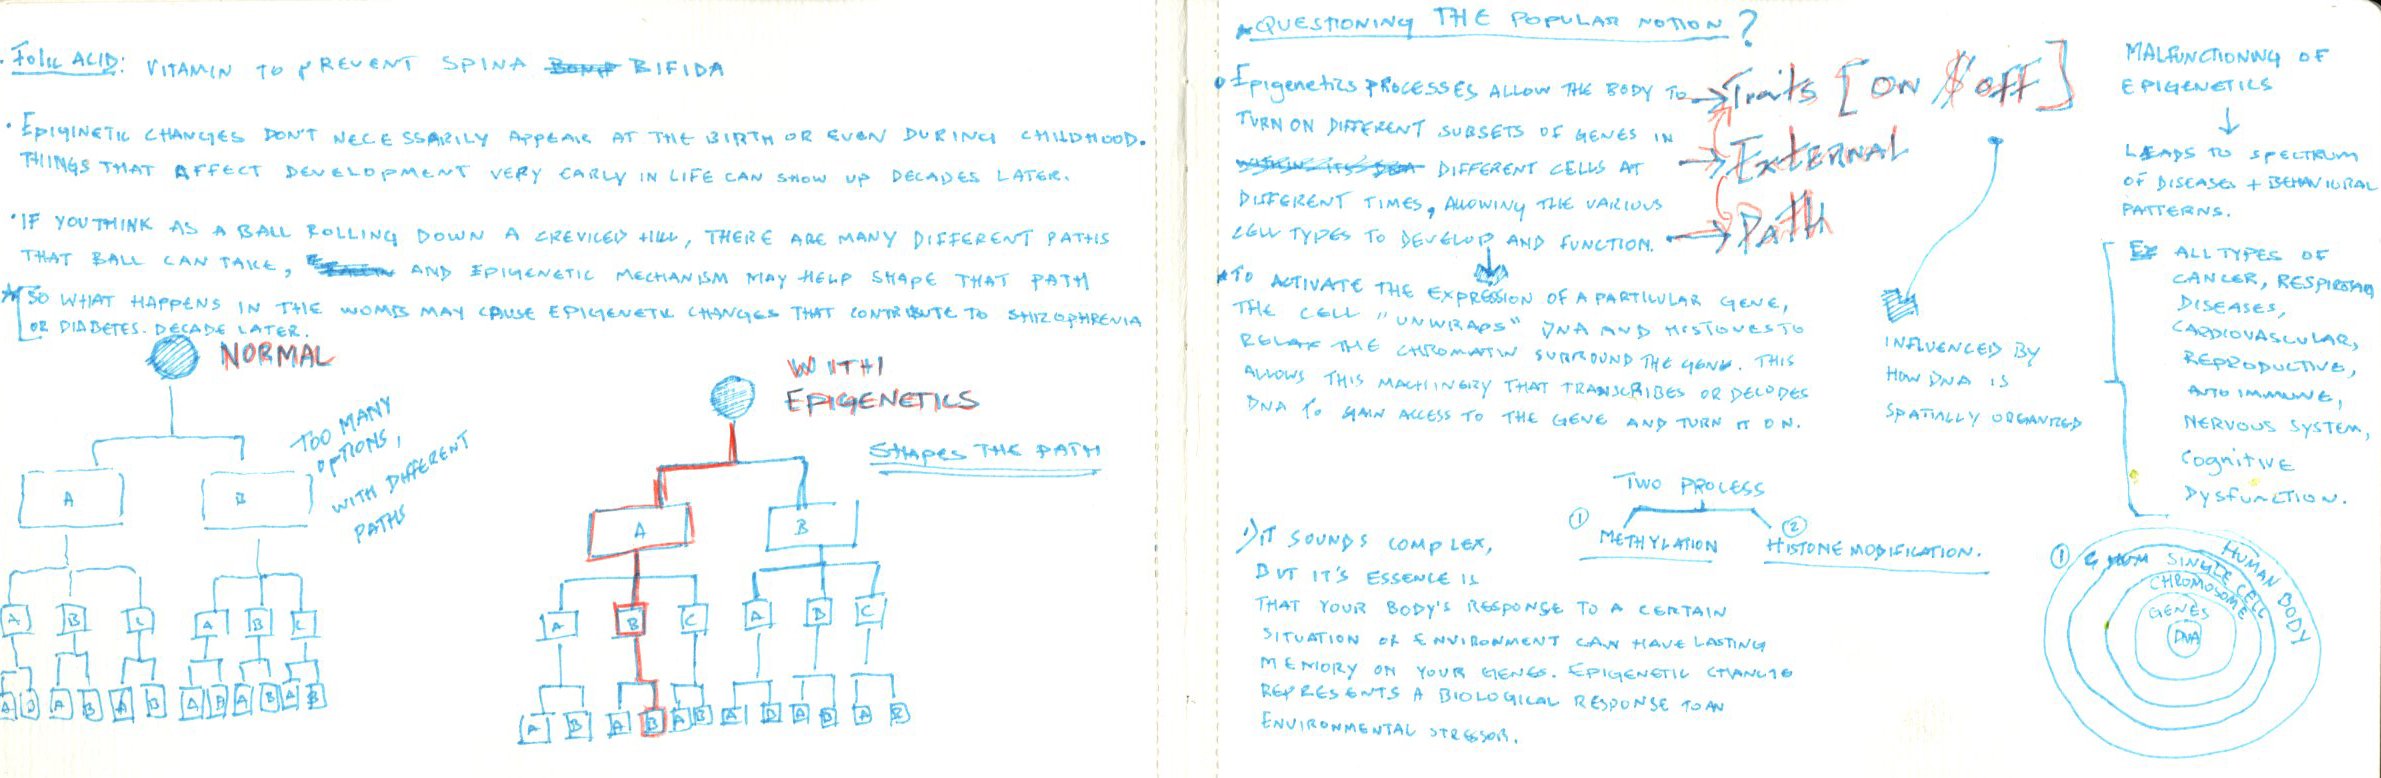 • Folic ACID: VITAMIN TO PREVENT SPINA BIFIDA
• EPIGINETIC CHANGES DON'T NECESSARILY APPEAR AT THE BIRTH OR EVEN DURING CHILDHOOD.
THINGS THAT AFFECT DEVELOPMENT VERY EARLY IN LIFE CAN SHOW UP DECADES LATER.
• IF YOU THINK AS A BALL ROLLING DOWN A CREVICED HILL, THERE ARE MANY DIFFERENT PATHS
THAT BALL CAN TAKE, AND EPIGENETIC MECHANISM MAY HELP SHAPE THAT PATH
* SO WHAT HAPPENS IN THE WOMB MAY CAUSE EPIGENETIC CHANGES THAT CONTRIBUTE TO SHIZOPHRENIA
OR DIABETES. DECADE LATER.
NORMAL
TOO MANY
OPTIONS,
WITH DIFFERENT
PATHS
A B
A B C A B C
A B A B A B A B A B A B
WITH
EPIGENETICS
SHAPES THE PATH
A B
A B C A B C
A B A B A B A B A B A B
* QUESTIONING THE POPULAR NOTION?
• Epigenetics PROCESSES ALLOW THE BODY TO
TURN ON DIFFERENT SUBSETS OF GENES IN
DIFFERENT CELLS AT
DIFFERENT TIMES, ALLOWING THE VARIOUS
CELL TYPES TO DEVELOP AND FUNCTION.
Traits [ON $ OFF]
EXTERNAL
Path
* TO ACTIVATE THE EXPRESSION OF A PARTICULAR GENE,
THE CELL "UNWRAPS" DNA AND HISTONES TO
RELAX THE CHROMATIN SURROUND THE GENE. THIS
ALLOWS THIS MACHINERY THAT TRANSCRIBES OR DECODES
DNA TO GAIN ACCESS TO THE GENE AND TURN IT ON.
INFLUENCED BY
HOW DNA IS
SPATIALLY ORGANIZED
TWO PROCESS
① METHYLATION
② HISTONE MODIFICATION.
1) IT SOUNDS COMPLEX,
BUT IT'S ESSENCE IS
THAT YOUR BODY'S RESPONSE TO A CERTAIN
SITUATION OF ENVIRONMENT CAN HAVE LASTING
MEMORY ON YOUR GENES. EPIGENETIC CHANGE
REPRESENTS A BIOLOGICAL RESPONSE TO AN
ENVIRONMENTAL STRESSOR.
MALFUNCTIONING OF
EPIGENETICS
LEADS TO SPECTRUM
OF DISEASES + BEHAVIORAL
PATTERNS.
EX ALL TYPES OF
CANCER, RESPIRATORY
DISEASES,
CARDIOVASCULAR,
REPRODUCTIVE,
AUTO IMMUNE,
NERVOUS SYSTEM,
Cognitive
Dysfunction.
①
HUMAN BODY
SINGLE CELL
CHROMOSOME
GENES
DNA